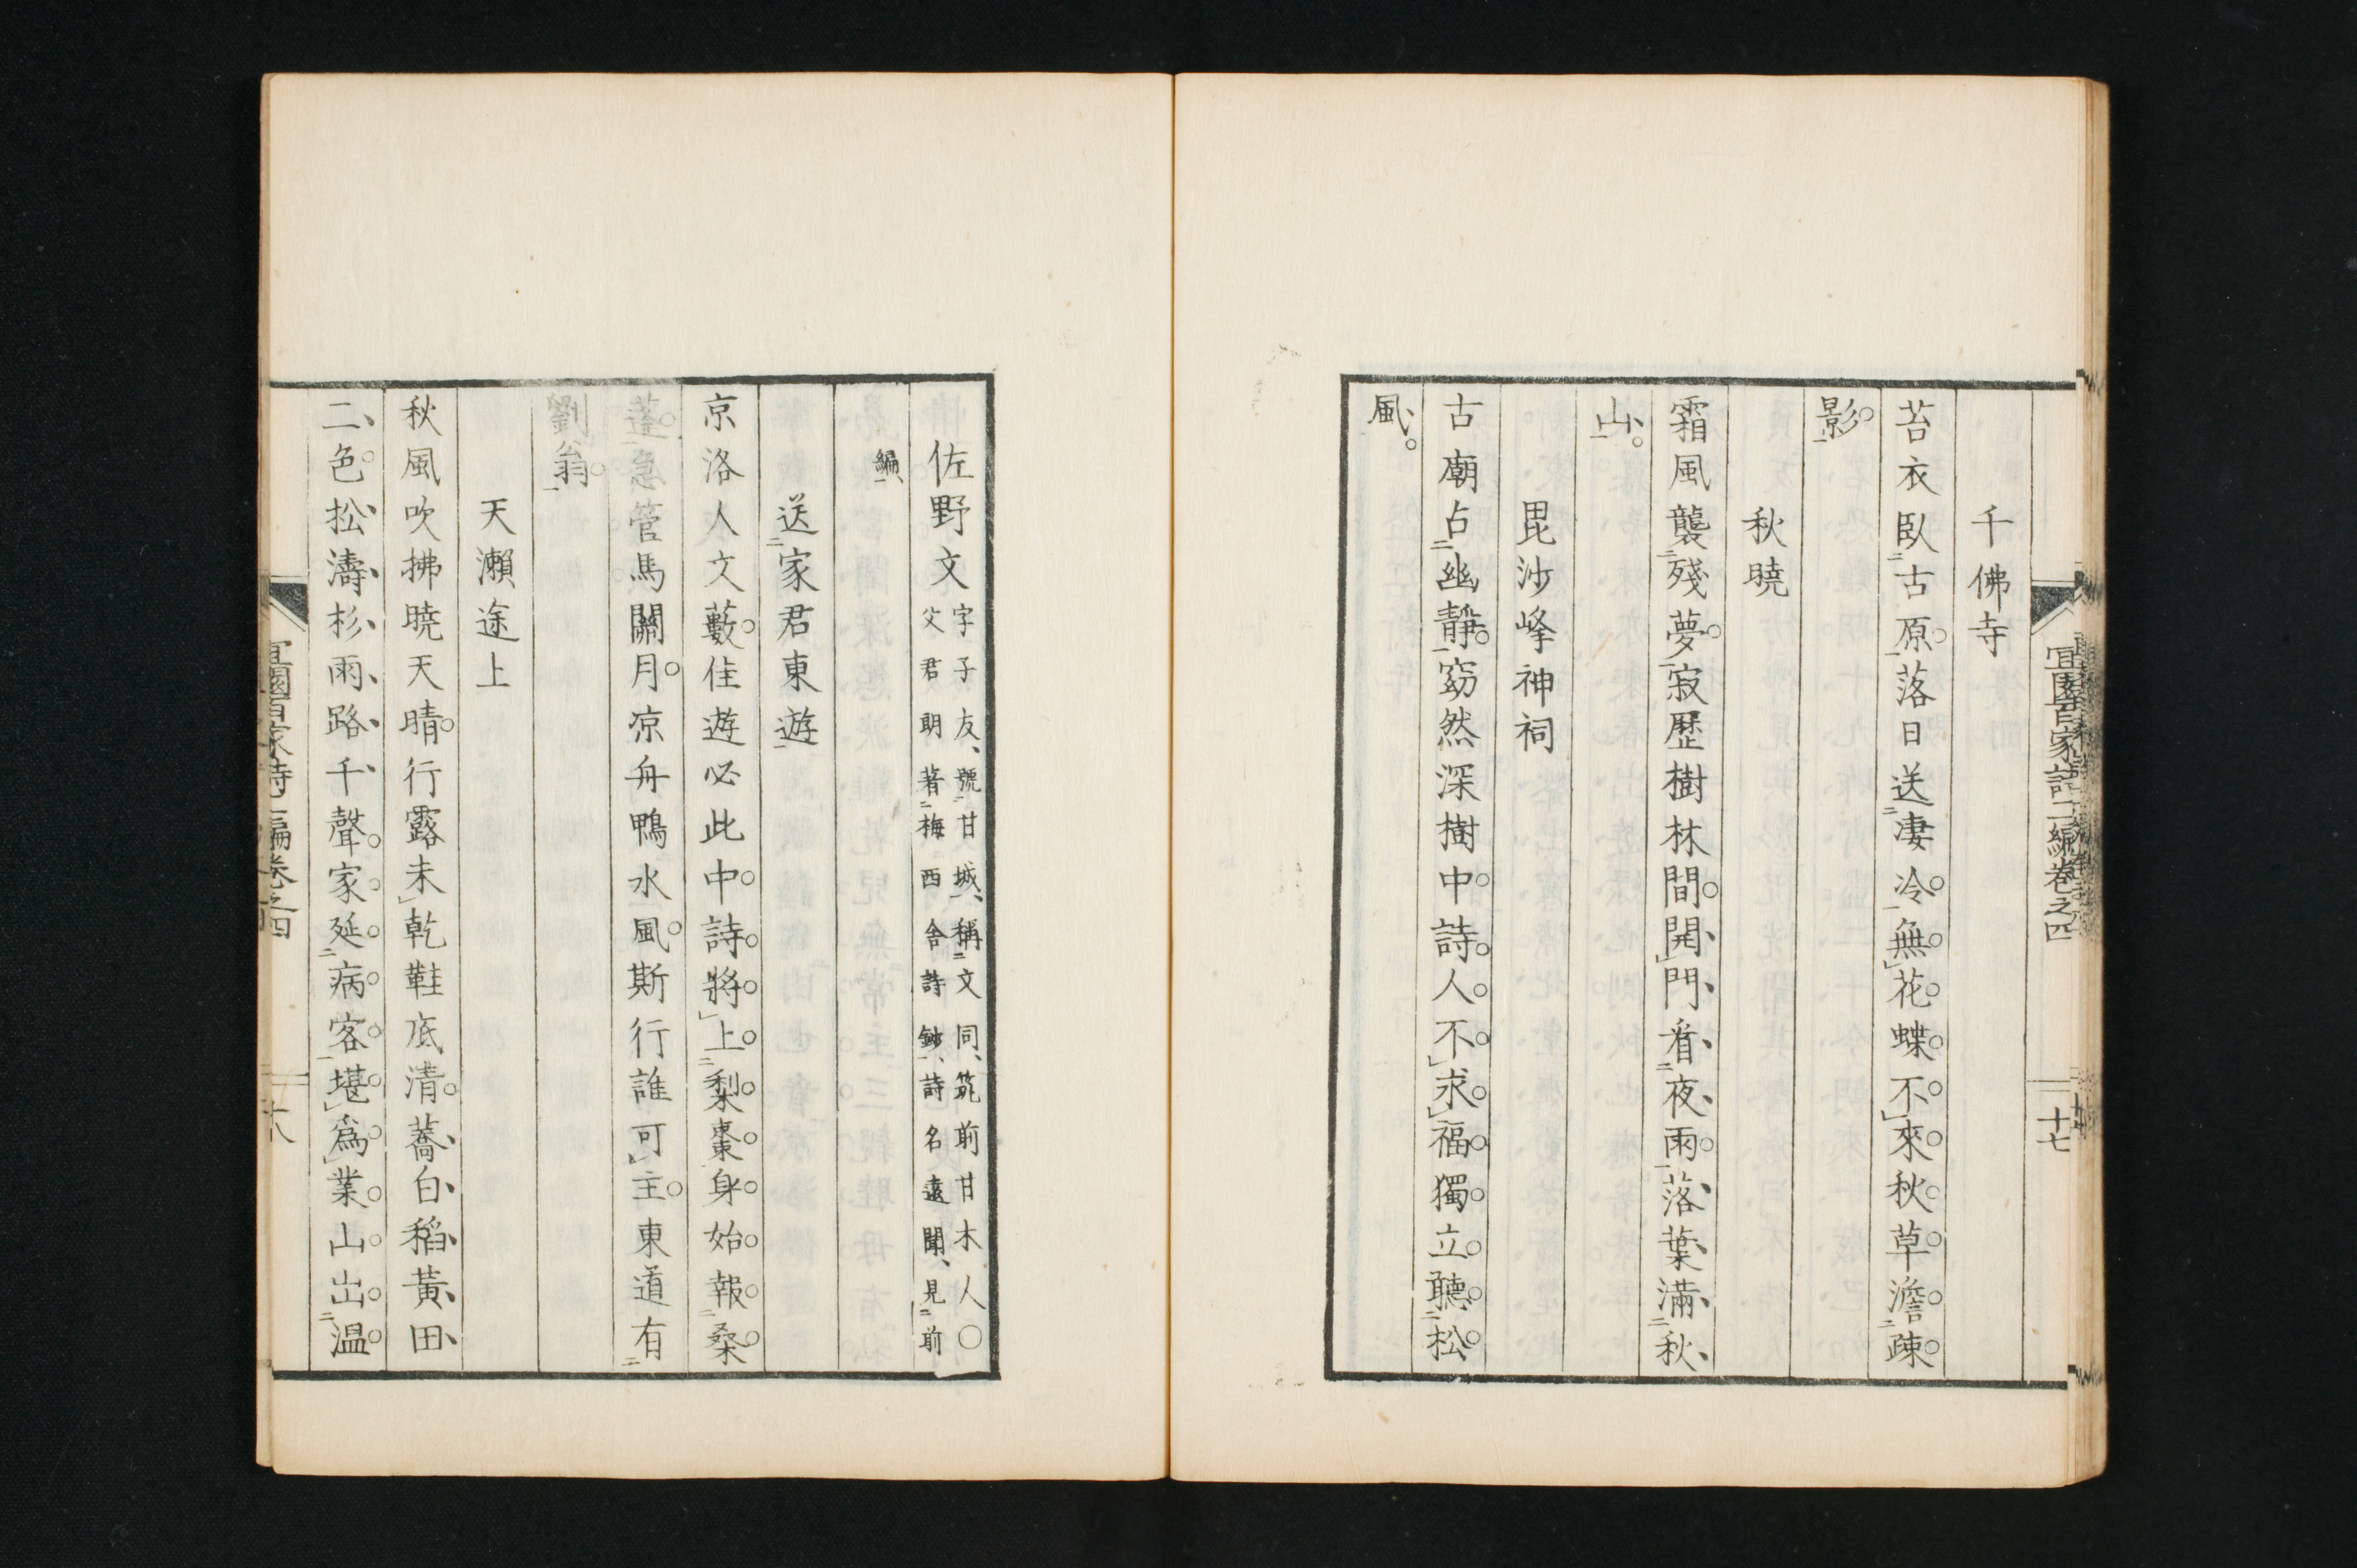 宜園百家詩二編卷之四
十七
千佛寺
苔衣臥古原落日送凄冷無花蝶不來秋草澹疎
影
秋曉
霜風襲殘夢寂歷樹林間開門看夜雨落葉滿秋
山
毘沙峰神祠
古廟占幽靜窈然深樹中詩人不求福獨立聽松
風
佐野文
字子友、號甘城、稱文同、筑前甘木人〇
父君朗著梅西舍詩鈔、詩名遠聞、見前
編
送家君東遊
京洛人文藪佳遊必此中詩將上梨棗身始報桑
蓬急管馬關月凉舟鴨水風斯行誰可主東道有
劉翁
天瀨途上
秋風吹拂曉天晴行露未乾鞋底清蕎白稻黃田
二色松濤杉雨路千聲家延病客堪爲業山出温
宜園百家詩二編卷之四
十八